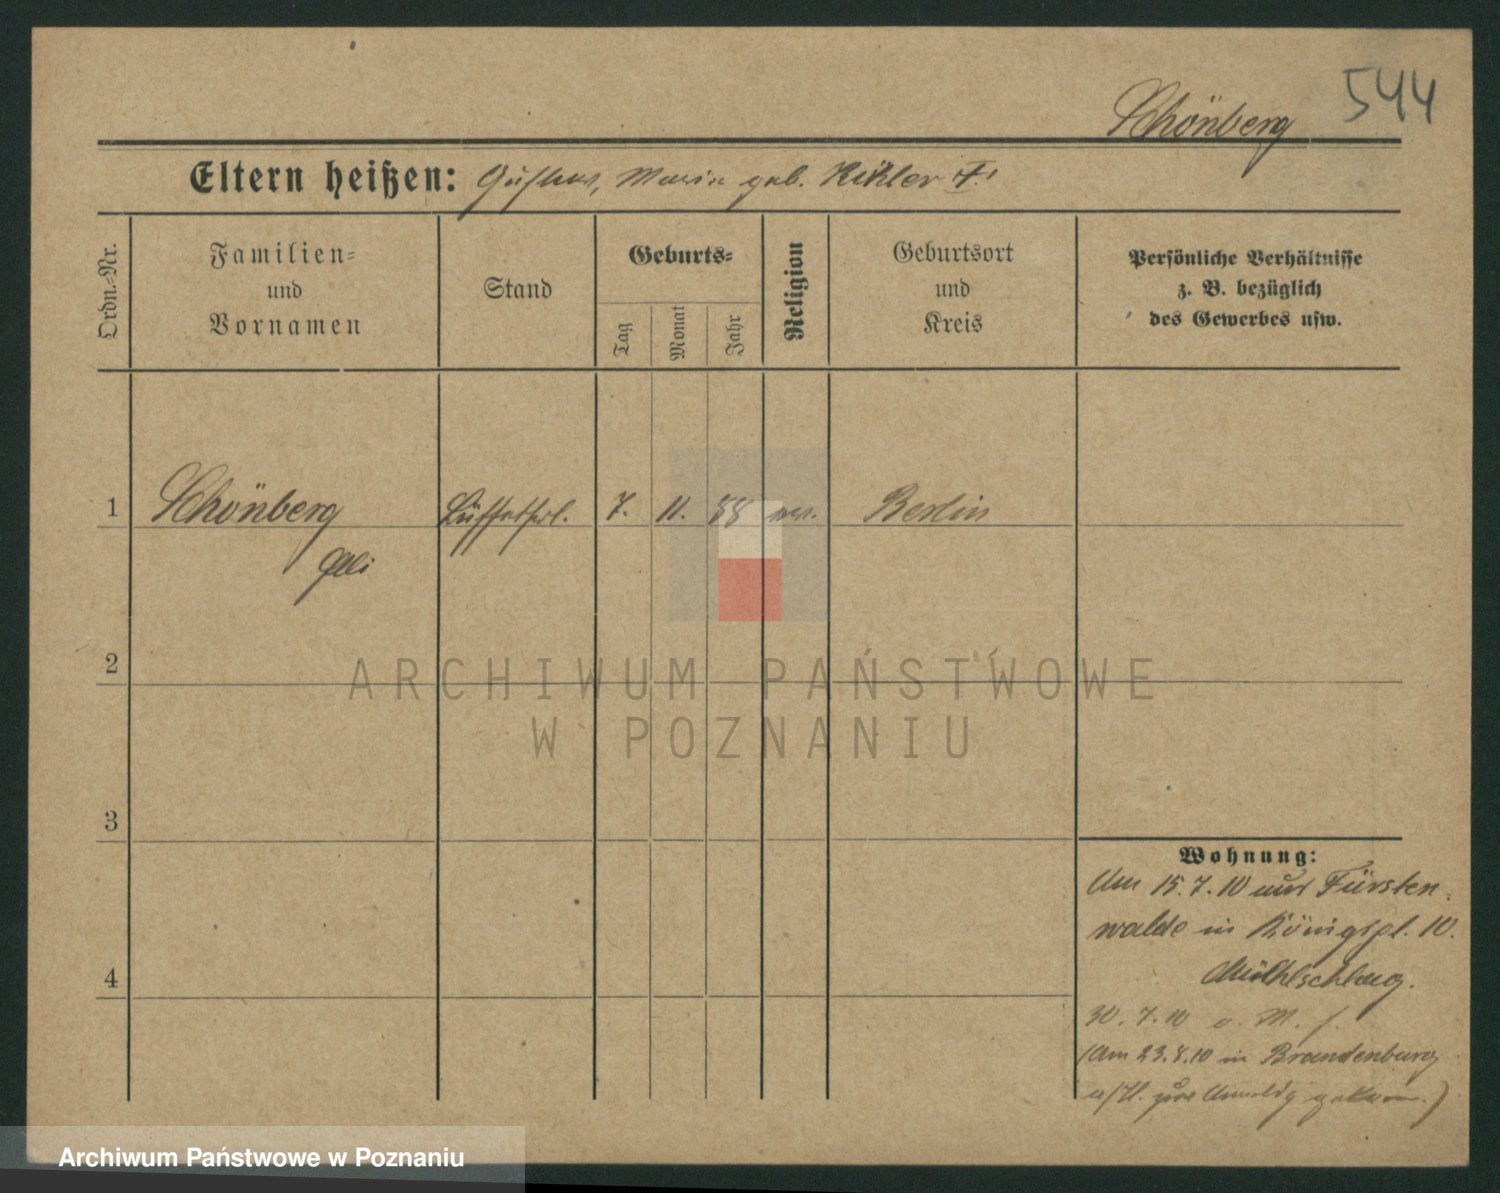 544
Schönberg
Eltern heißen: Gustav, Marie geb. Köhler †
Ordn.-Nr.
Familien-
und
Vornamen
Stand
Geburts-
Tag
Monat
Jahr
Religion
Geburtsort
und
Kreis
Persönliche Verhältnisse
z. B. bezüglich
des Gewerbes usw.
1 Schönberg Büffetfrl. 7. 11. 88 ev. Berlin
2
3
4
Wohnung:
Am 15.7.10 aus Fürsten-
walde in Königspl. 10.
Mühlschlag.
30.7.10 o. M. f.
(Am 23.8.10 in Brandenburg
a/H. zur Anmeldg gekom.)
ARCHIWUM PAŃSTWOWE
W POZNANIU
Archiwum Państwowe w Poznaniu